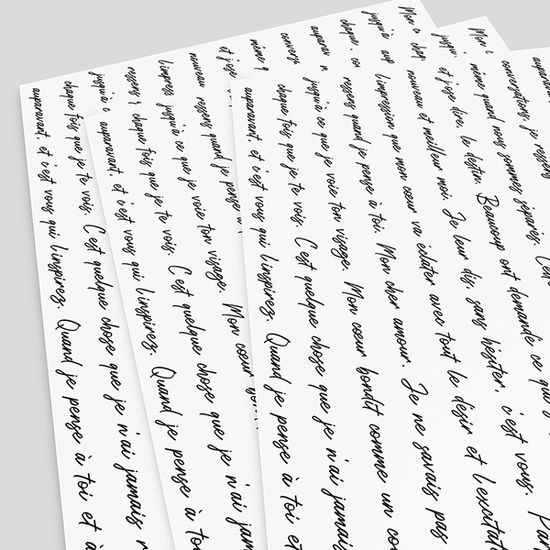 conversations, je ressens
même quand nous sommes séparés. L'en
et j'ose dire, le destin. Beaucoup ont demandé ce que
nouveau et meilleur moi. Je leur dis, sans hésiter, c'est vous. Par
l'impression que mon cœur va éclater avec tout le désir et l'excitat
ressens quand je pense à toi. Mon cher amour. Je ne savais pas
jusqu'à ce que je voie ton visage. Mon cœur bondit comme un co
chaque fois que je te vois. C'est quelque chose que je n'ai jamais
auparavant, et c'est vous qui l'inspirez. Quand je pense à toi et
ressens quand je pense à
jusqu'à ce que je voie ton visage. Mon cœur bon
chaque fois que je te vois. C'est quelque chose que je n'ai jam
auparavant, et c'est vous qui l'inspirez. Quand je pense à to
chaque fois que je te vois. C'est quelque chose que je n'ai jamais r
auparavant, et c'est vous qui l'inspirez. Quand je pense à toi et à